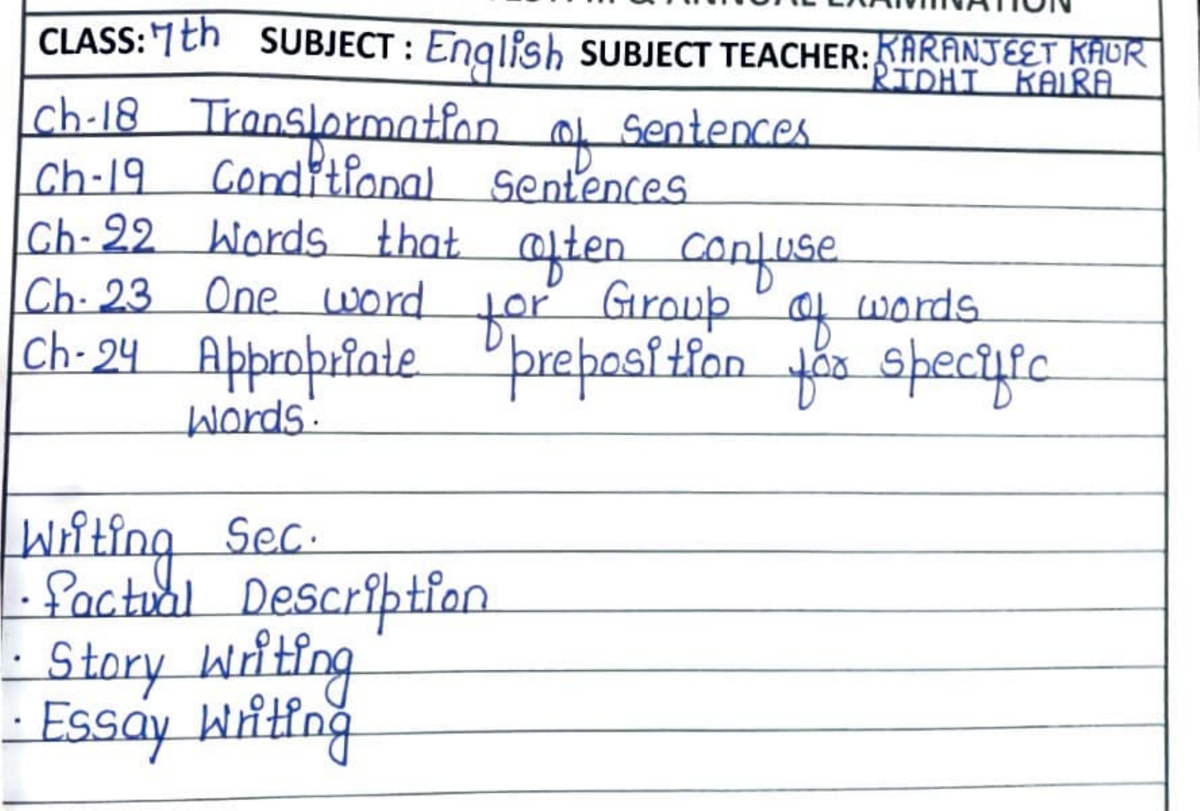 & ANNUAL EXAMINATION
CLASS: 7th SUBJECT : English SUBJECT TEACHER: KARANJEET KAUR
RIDHI KAIRA
Ch-18 Transformation of sentences
Ch-19 Conditional sentences
Ch-22 Words that often confuse
Ch-23 One word for Group of words
Ch-24 Appropriate preposition for specific
words.
Writing Sec.
· factual Description
· Story Writing
· Essay Writing